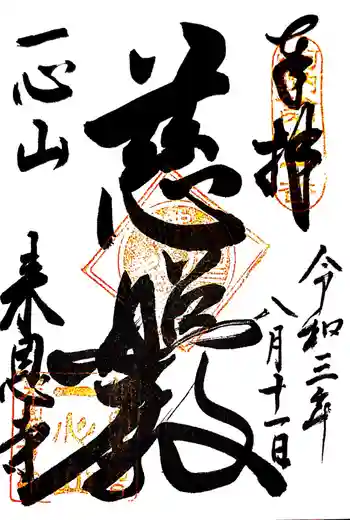 奉拝
令和三年
八月十一日
慈
一心山
来恩寺